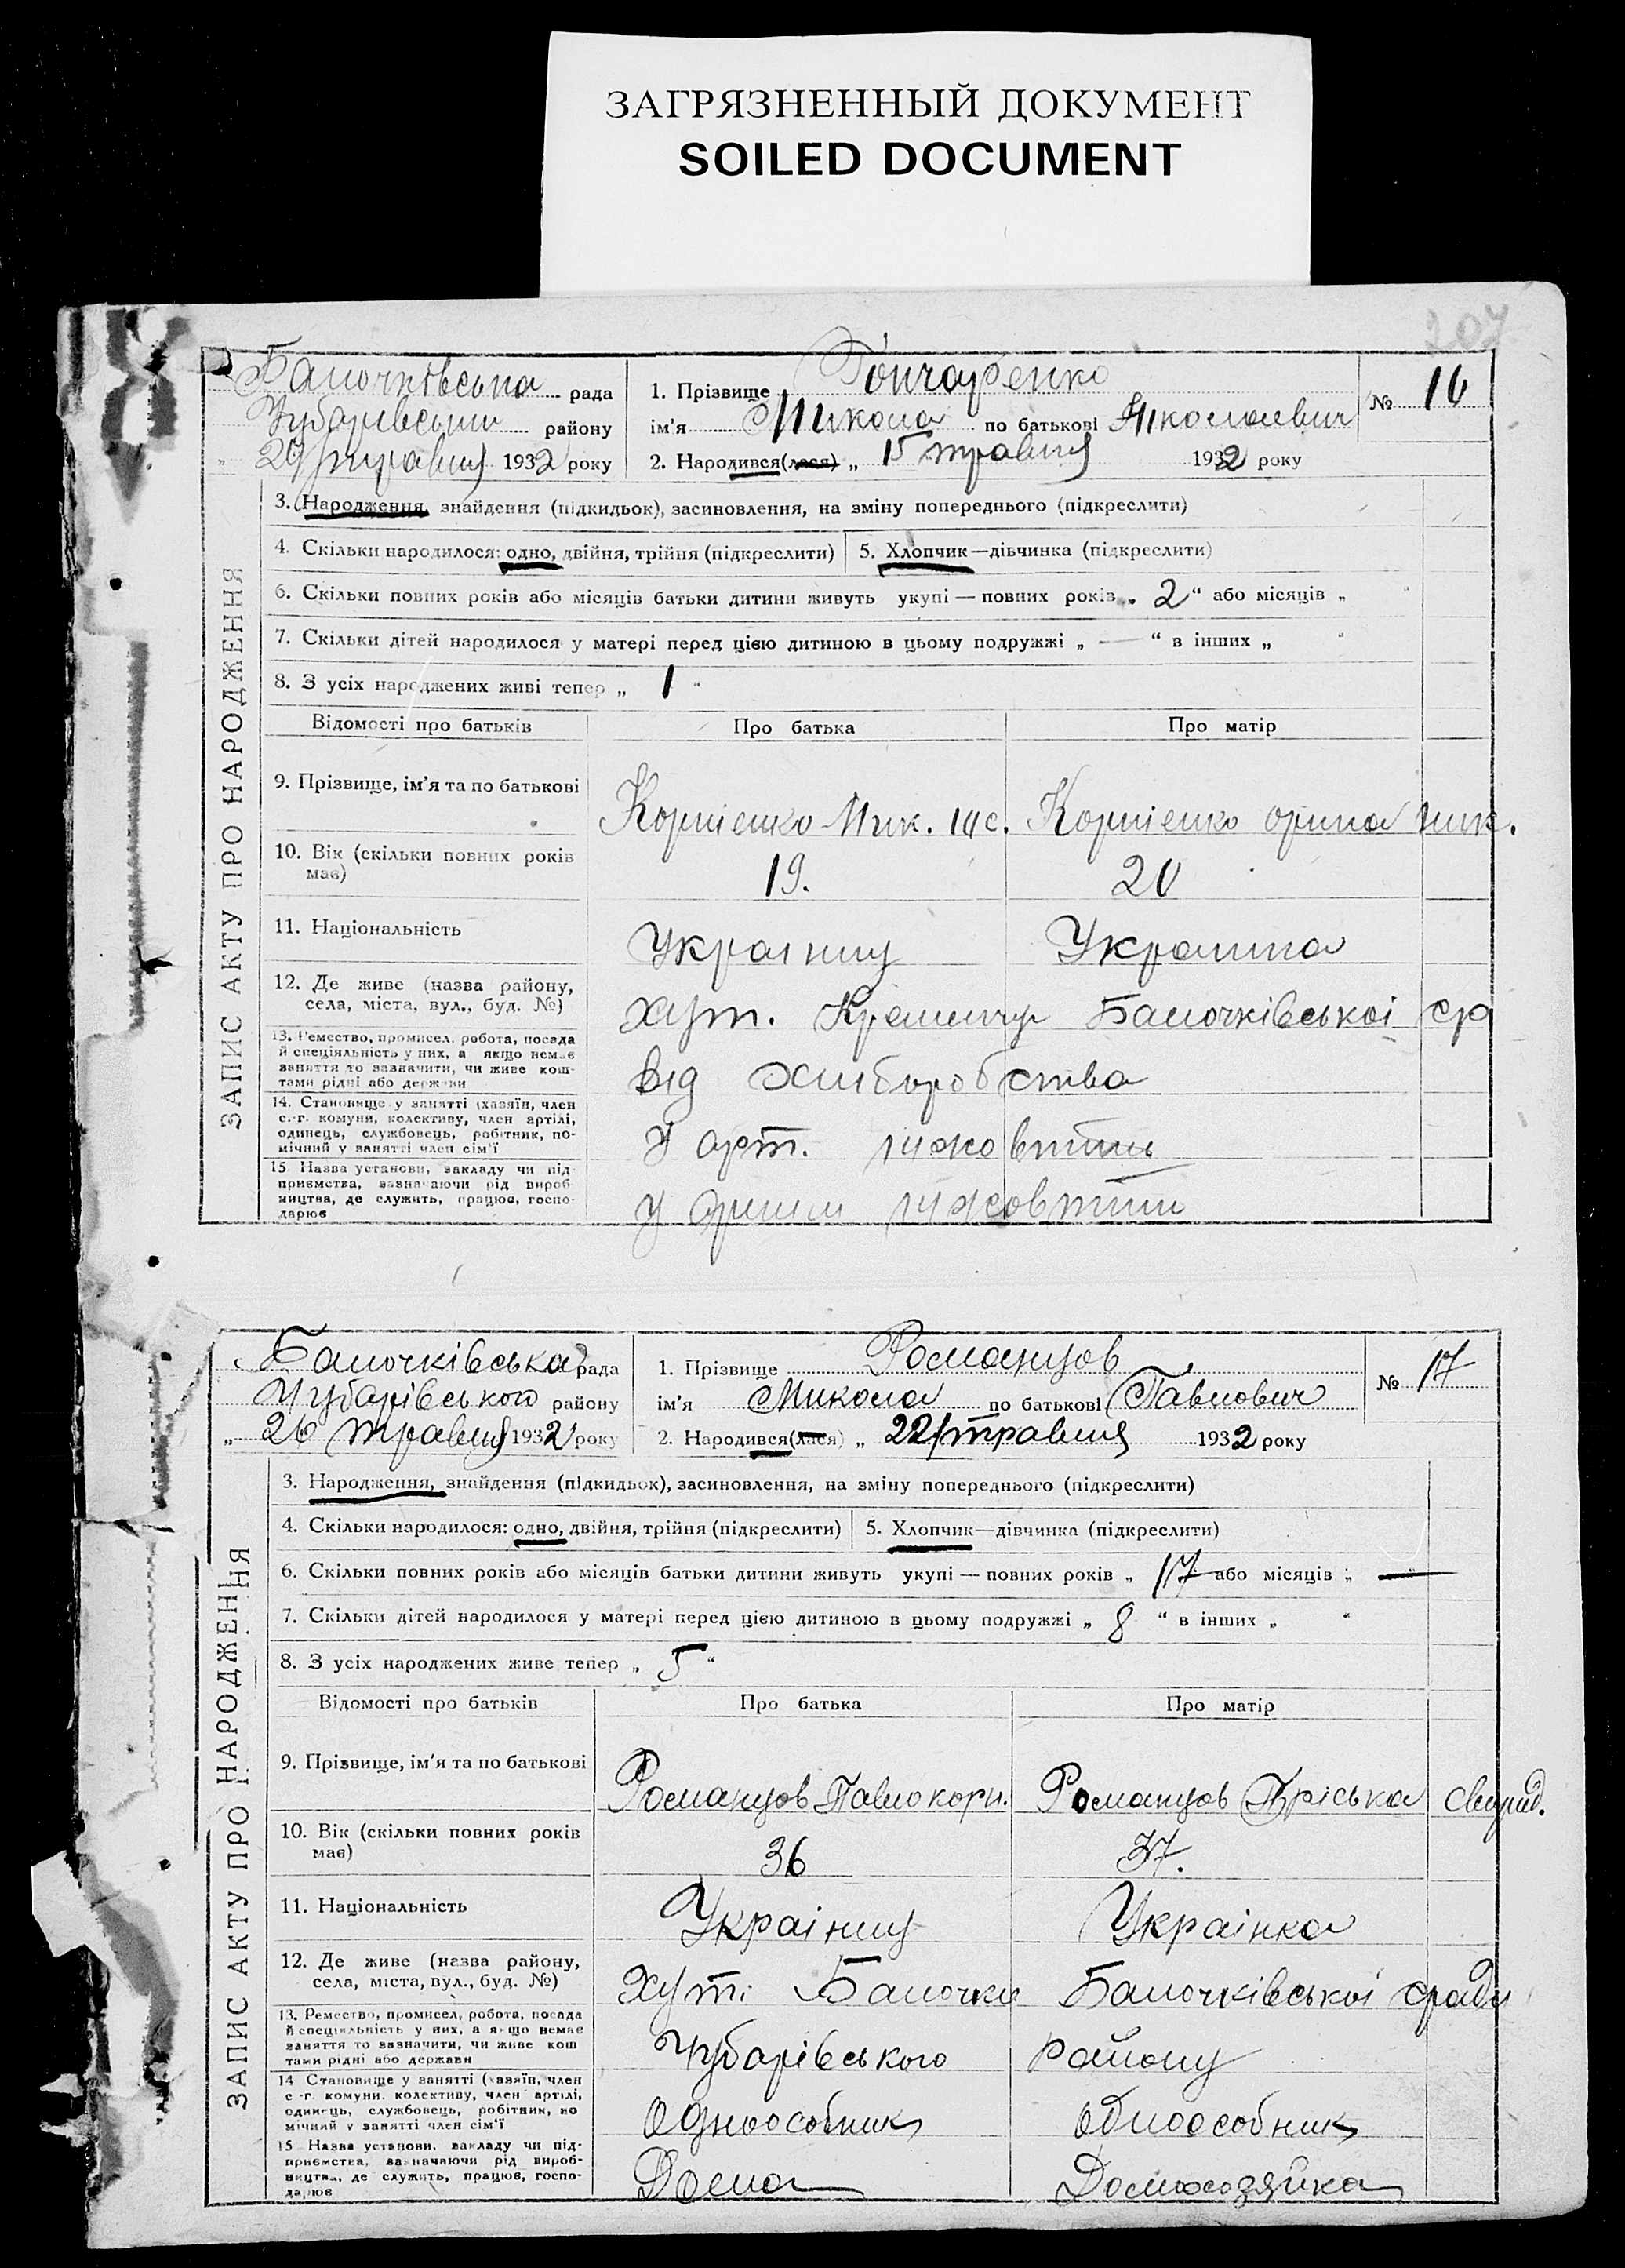 ЗАГРЯЗНЕННЫЙ ДОКУМЕНТ
SOILED DOCUMENT
207
Балочківська рада
1. Прізвище Гончаренко
№ 16
району
ім'я Микола по батькові Миколаевич
29 травня 1932 року
2. Народився(лася) „ 15 травня 1932 року
ЗАПИС АКТУ ПРО НАРОДЖЕННЯ
3. Народження, знайдення (підкидьок), засиновлення, на зміну попереднього (підкреслити)
4. Скільки народилося: одно, двійня, трійня (підкреслити)
5. Хлопчик—дівчинка (підкреслити)
6. Скільки повних років або місяців батьки дитини живуть укупі — повних років „ 2 “ або місяців „ “
7. Скільки дітей народилося у матері перед цією дитиною в цьому подружжі „ — “ в інших „ “
8. З усіх народжених живі тепер „ 1 “
Відомості про батьків
Про батька
Про матір
9. Прізвище, ім'я та по батькові
Корніенко Мик.
Корніенко Орина мик.
10. Вік (скільки повних років має)
19.
20
11. Національність
Украінец
Украінка
12. Де живе (назва району,
села, міста, вул., буд. №)
хут. Балочківськоі ср
13. Ремество, промисел, робота, посада
й спеціяльність у них, а якщо немає
заняття то зазначити, чи живе кош-
тами рідні або держави
від хліборобства
14. Становище у занятті (хазяїн, член
с.-г. комуни, колективу, член артілі,
одинець, службовець, робітник, по-
мічний у занятті член сім'ї
У арт. жовтень
15. Назва установи, закладу чи під-
приємства, зазначаючи рід вироб-
ництва, де служить, працює, госпо-
дарює
у
Балочківська рада
1. Прізвище Романцов
№ 17
Чубарівського району
ім'я Микола по батькові Павлович
„ 26 травня 1932 року
2. Народився(лася) „ 22/травня 1932 року
ЗАПИС АКТУ ПРО НАРОДЖЕННЯ
3. Народження, знайдення (підкидьок), засиновлення, на зміну попереднього (підкреслити)
4. Скільки народилося: одно, двійня, трійня (підкреслити)
5. Хлопчик—дівчинка (підкреслити)
6. Скільки повних років або місяців батьки дитини живуть укупі — повних років „ 17 або місяців „ — “
7. Скільки дітей народилося у матері перед цією дитиною в цьому подружжі „ 8 “ в інших „ “
8. З усіх народжених живе тепер „ 5 “
Відомості про батьків
Про батька
Про матір
9. Прізвище, ім'я та по батькові
Романцов Павло корн.
Романцов Пріська свирид.
10. Вік (скільки повних років має)
36
37.
11. Національність
Украінец
Украінка
12. Де живе (назва району,
села, міста, вул., буд. №)
хут. Балочки Балочківськоі сради
13. Ремество, промисел, робота, посада
й спеціяльність у них, а якщо немає
заняття то зазначити, чи живе кош
тами рідні або держави
Чубарівського району
14 Становище у занятті (хазяїн, член
с-г. комуни, колективу, член артілі,
одинець, службовець, робітник, по
мічний у занятті член сім'ї
Одноособник
одноособник
15 Назва установи, закладу чи під-
приємства, зазначаючи рід вироб-
ництва, де служить, працює, госпо-
дарює
Дома
Домохозяйка